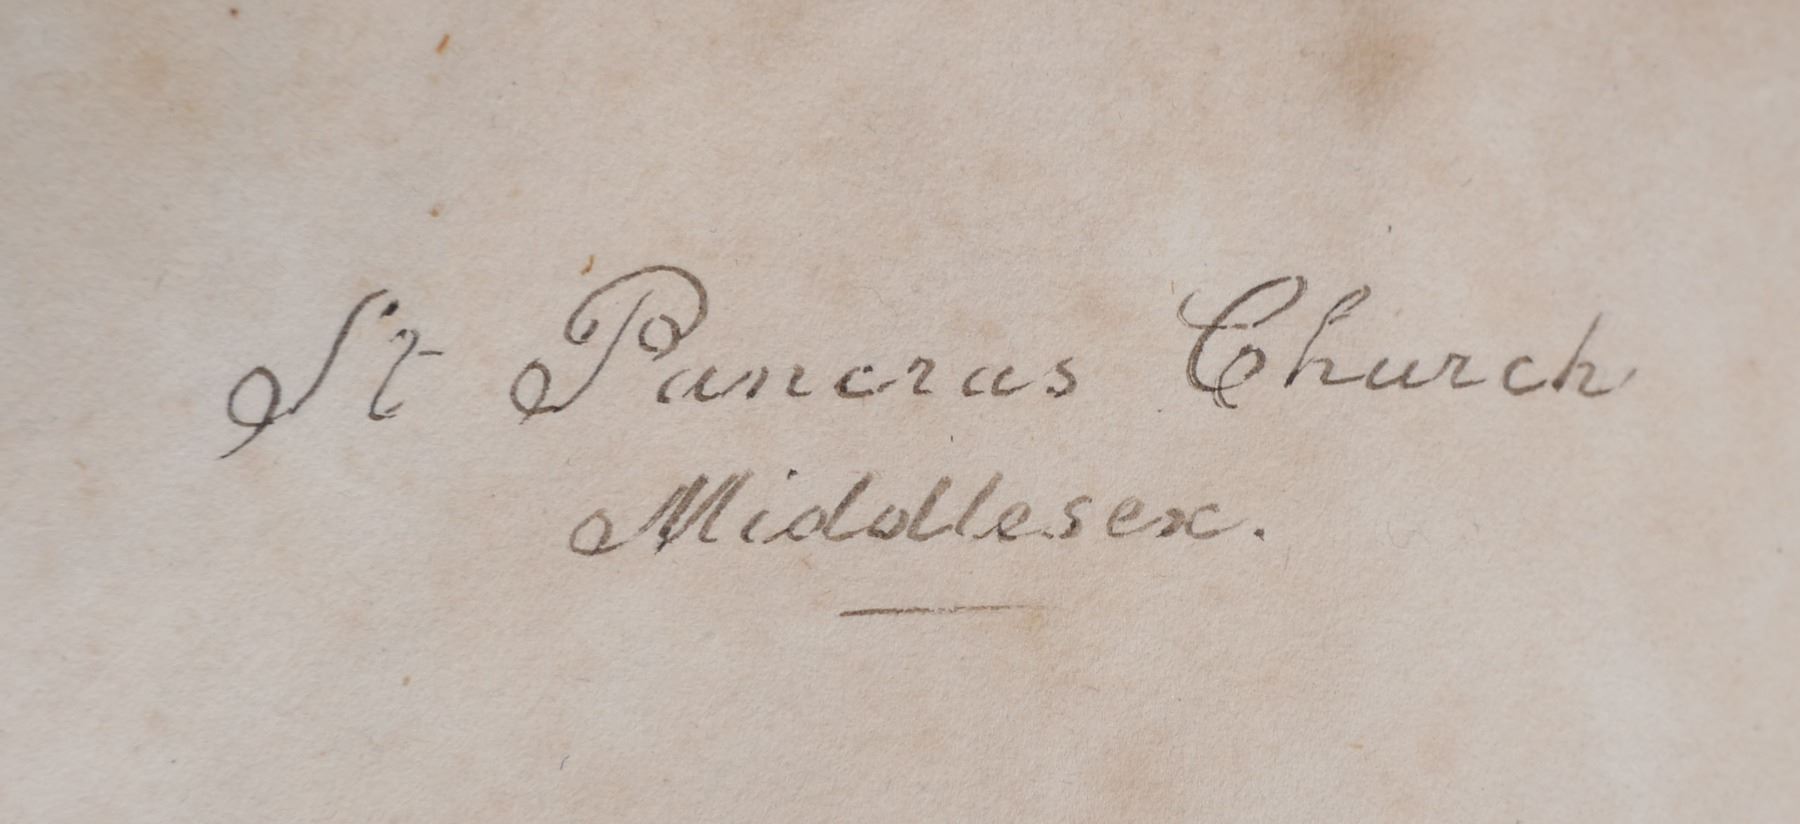 St Pancras Church
Middlesex.